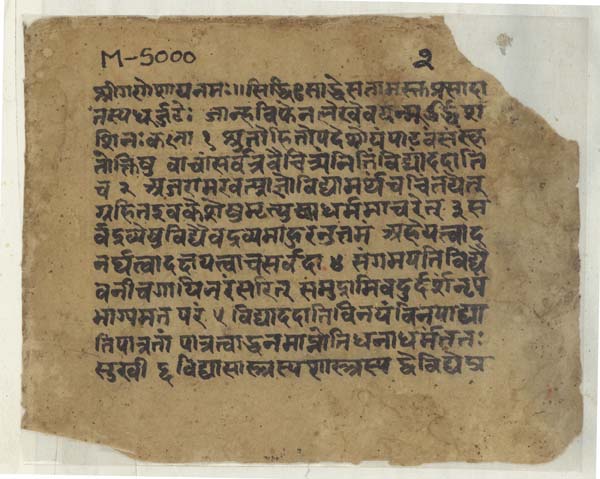 M-5000
१
श्रीगणेशायनमः॥सिद्धिःसाद्धेसतामस्तुप्रसादा
तस्यधूर्ज्जटेः जान्हविफेनलेखेवयन्मूर्द्ध्निशशि
शिनःकला १ श्रुतोहितोपदेशोयंपाटवंसंस्कृ
तोक्तिषु वाचांसर्वत्रवैचित्र्यंनितिविद्यांददाति
च २ अजरामरवत्प्राज्ञोविद्यामर्थंचचिंतयेत्
गृहितइवकेशेषुमृत्युनाधर्ममाचरेत् ३ स
र्वद्रव्येषुविद्यैवद्रव्यमाहुरनुत्तमं अहार्यत्वाद
नर्घत्वादक्षयत्वाच्चसर्वदा ४ संगमयतिविद्यै
वनीचगापिनरंसरित् समुद्रमिवदुर्दर्शंनृपं
भाग्यमतःपरं ५ विद्याददातिविनयंविनयाद्या
तिपात्रतां पात्रत्वाद्धनमाप्नोतिधनाधर्मंततः
सुखं ६ विद्यासास्त्रस्यशास्त्रस्यद्वेविद्येप्र